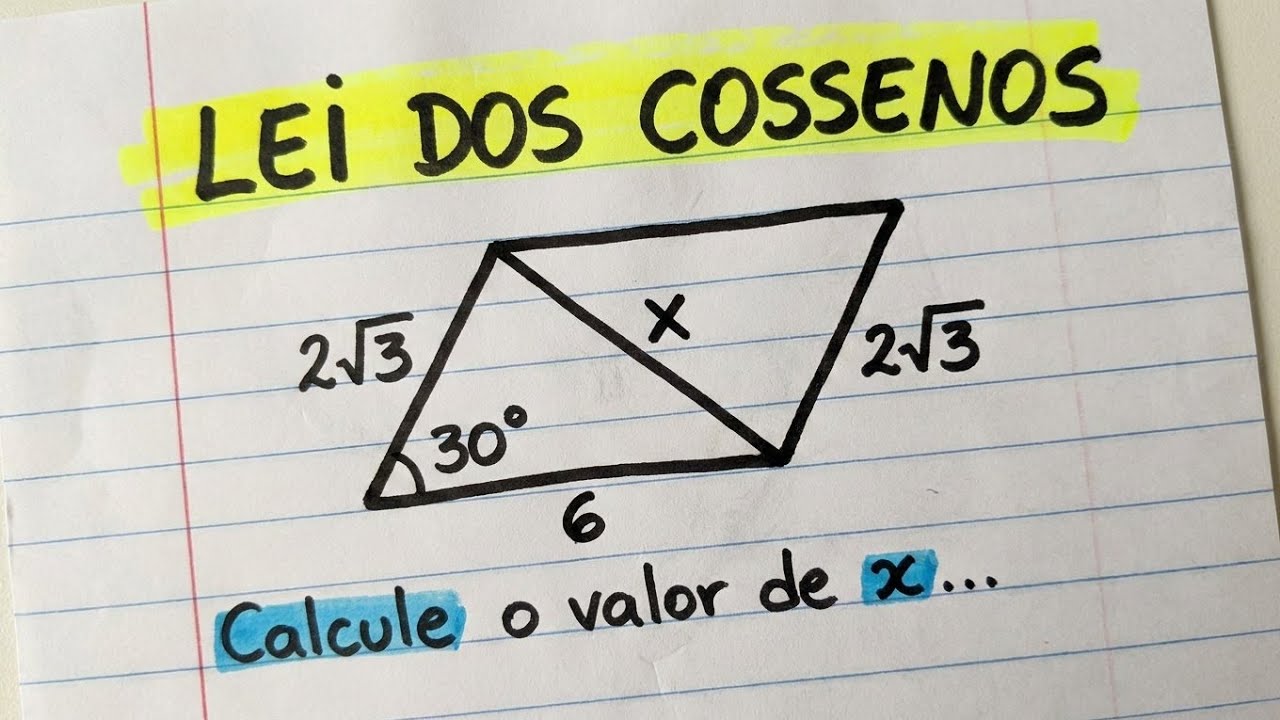 LEI DOS COSSENOS
x
2√3
2√3
30°
6
Calcule o valor de x...